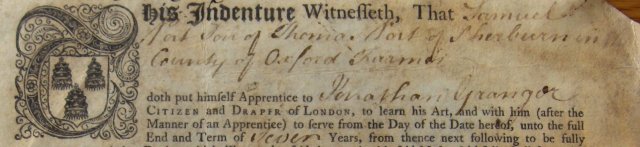 This Indenture Witnesseth, That Samuel
Son of Thomas of Sherburn in the
County of Oxford Farmer
doth put himself Apprentice to Jonathan Granger
CITIZEN and DRAPER of LONDON, to learn his Art, and with him (after the
Manner of an Apprentice) to serve from the Day of the Date hereof, unto the full
End and Term of Seven Years, from thence next following to be fully